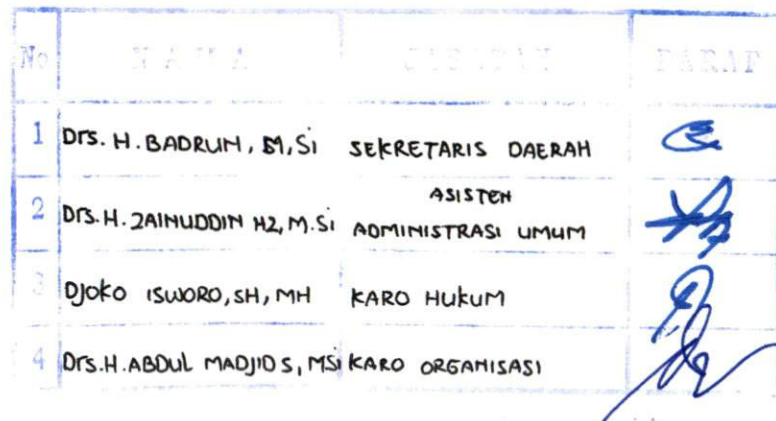 No NAMA JABATAN PARAF
1 Drs. H. BADRUN, M,Si SEKRETARIS DAERAH
2 Drs. H. ZAINUDDIN HZ, M.Si ASISTEN
ADMINISTRASI UMUM
3 DJOKO ISWORO, SH, MH KARO HUKUM
4 Drs. H. ABDUL MADJID S, MSi KARO ORGANISASI